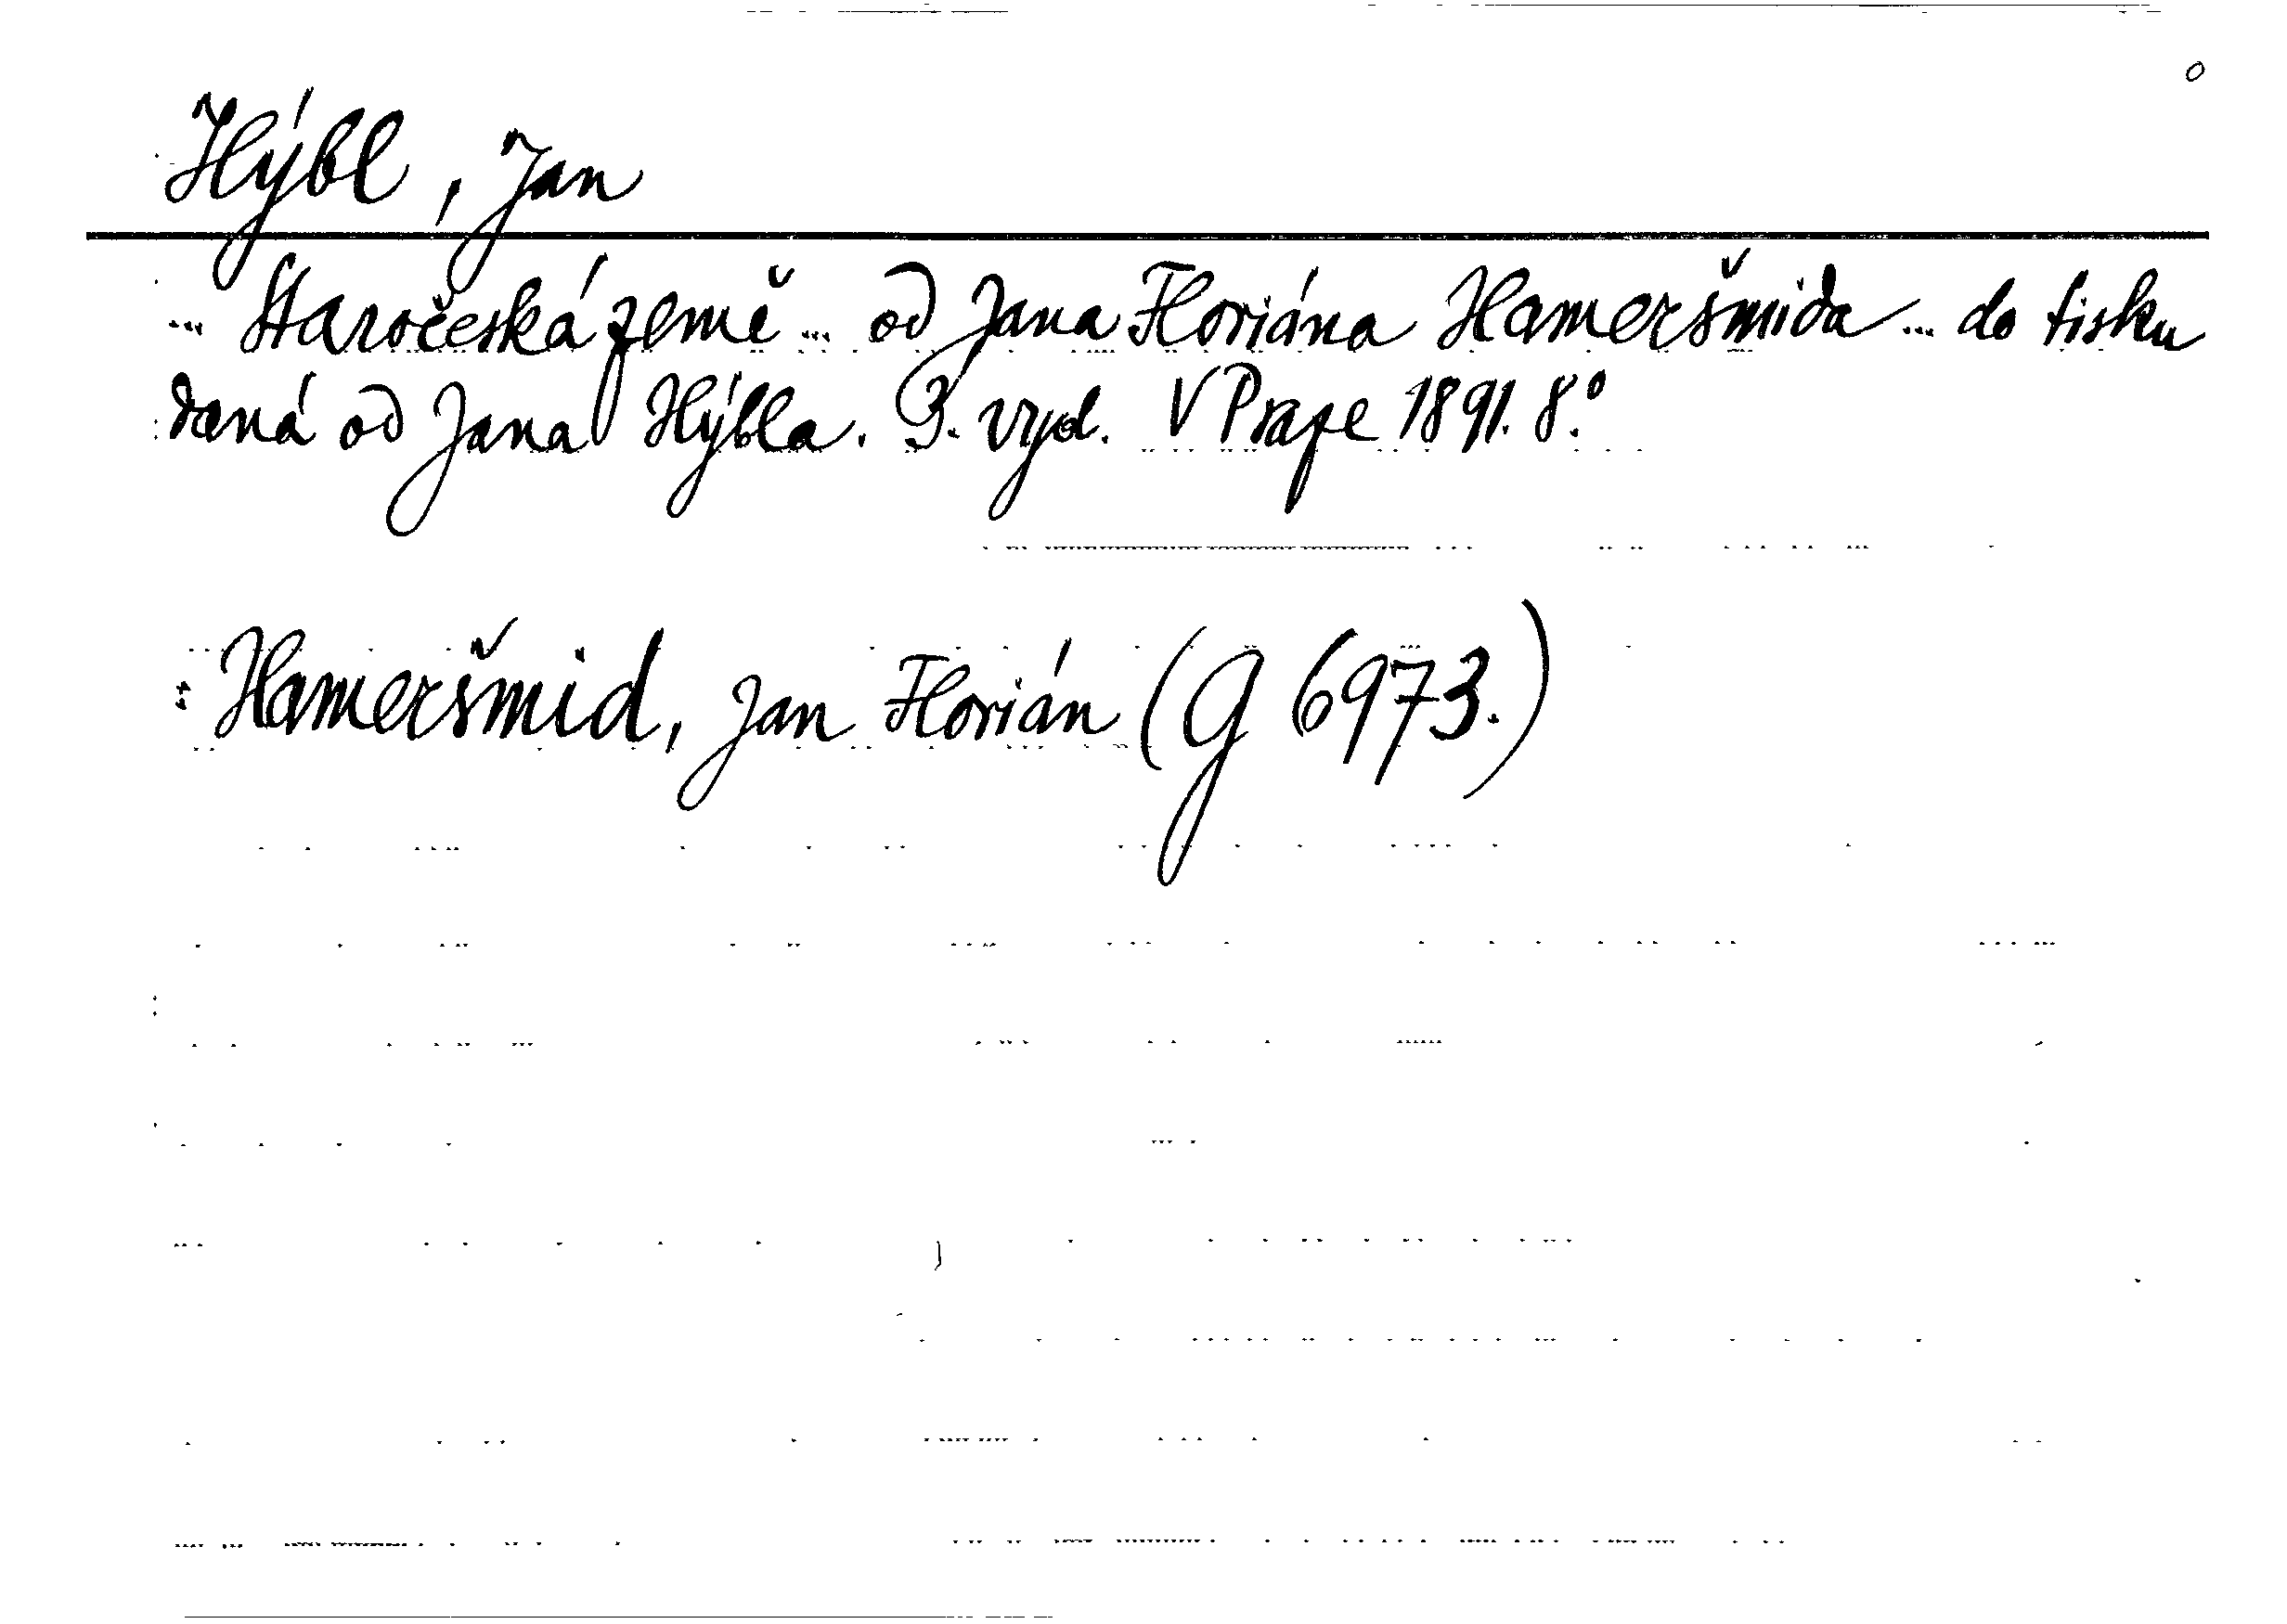 Hýbl, Jan
... Staročeská země ... od Jana Floriána Hameršmida ... do tisku
daná od Jana Hýbla. 3. vyd. V Praze 1891. 8.°
: Hameršmid, Jan Florián (G 6973.)